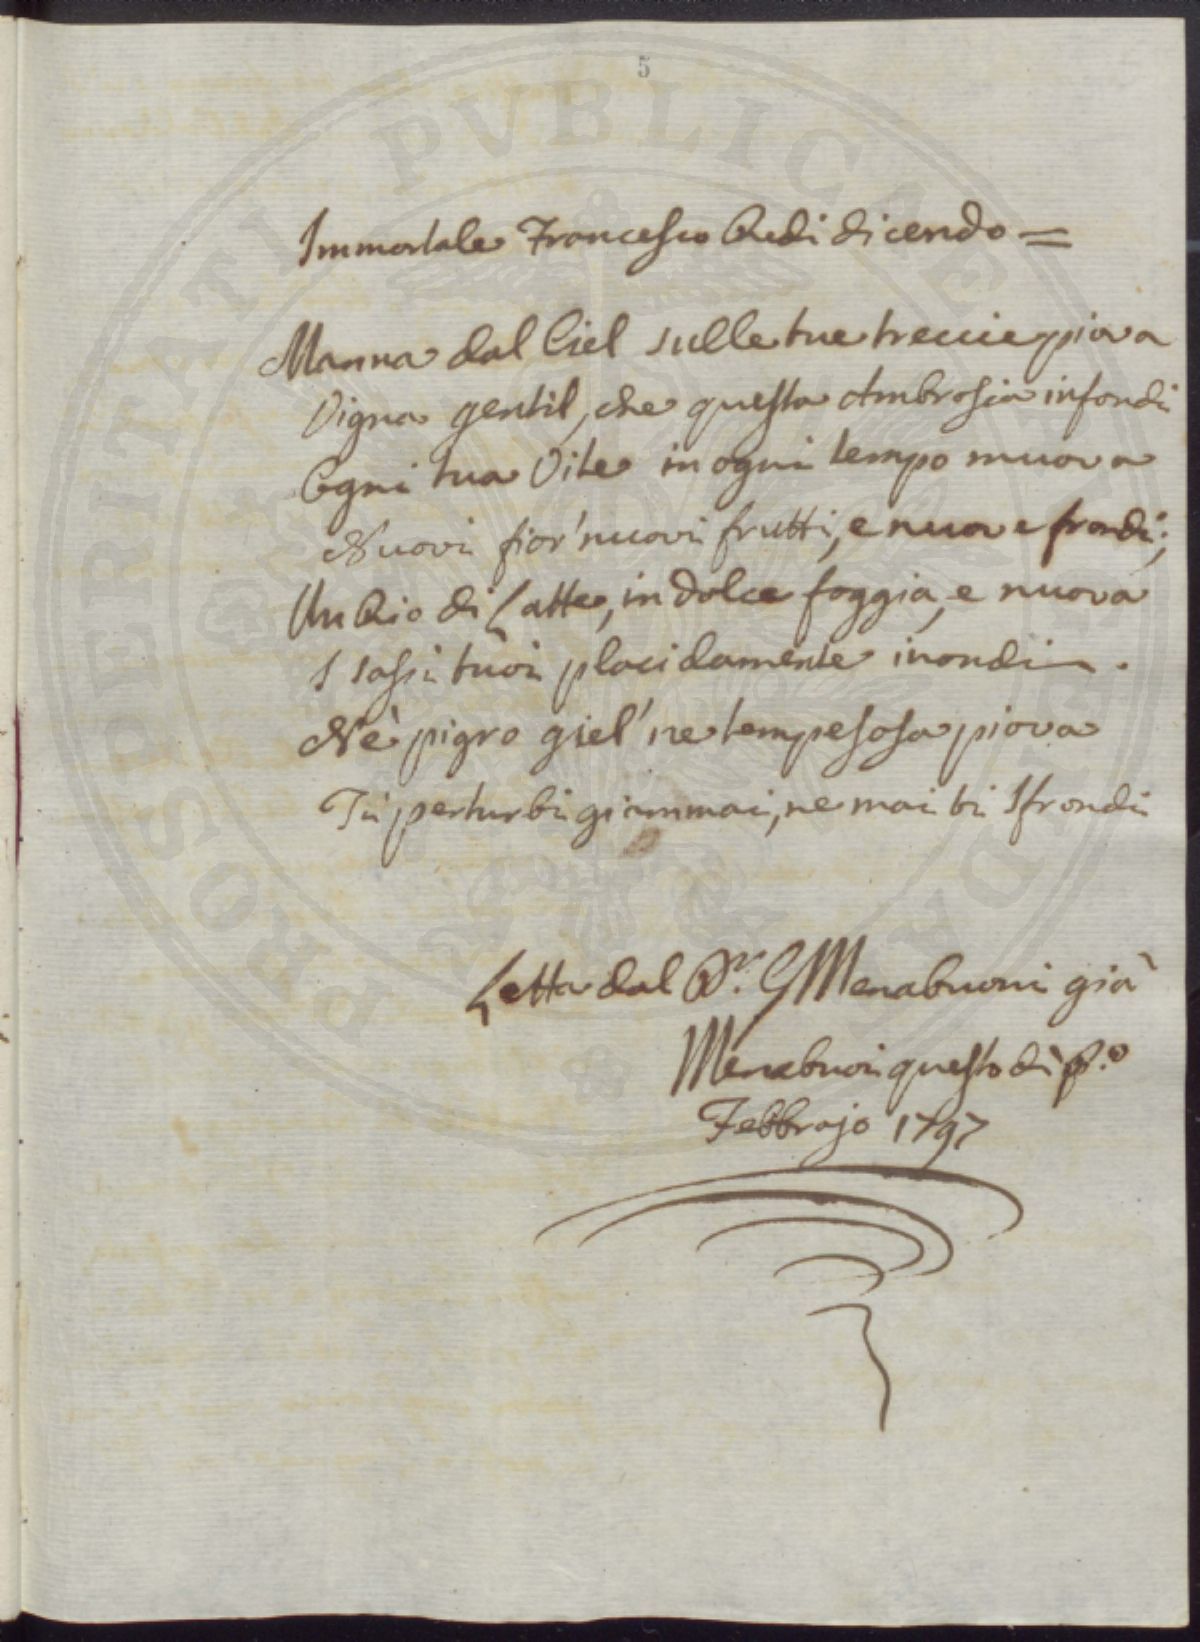 5
Immortale Francesco Redi dicendo =
Manna dal Ciel sulle tue treccie piova
Vigna gentil, che questa Ambrosia infondi
Ogni tua Vite in ogni tempo muova
Nuovi fior' nuovi frutti, e nuove frondi;
Un Rio di Latte, in dolce foggia, e nuova
I sassi tuoi placidamente inondi.
Nè pigro giel' ne tempesosa piova
Ti perturbi giammai, ne mai ti sfrondi
Letta dal D.r G Menabuoni già
Menabuoi questo dì p.o
Febbrajo 1797
PROSPERITATI PVBLICAE